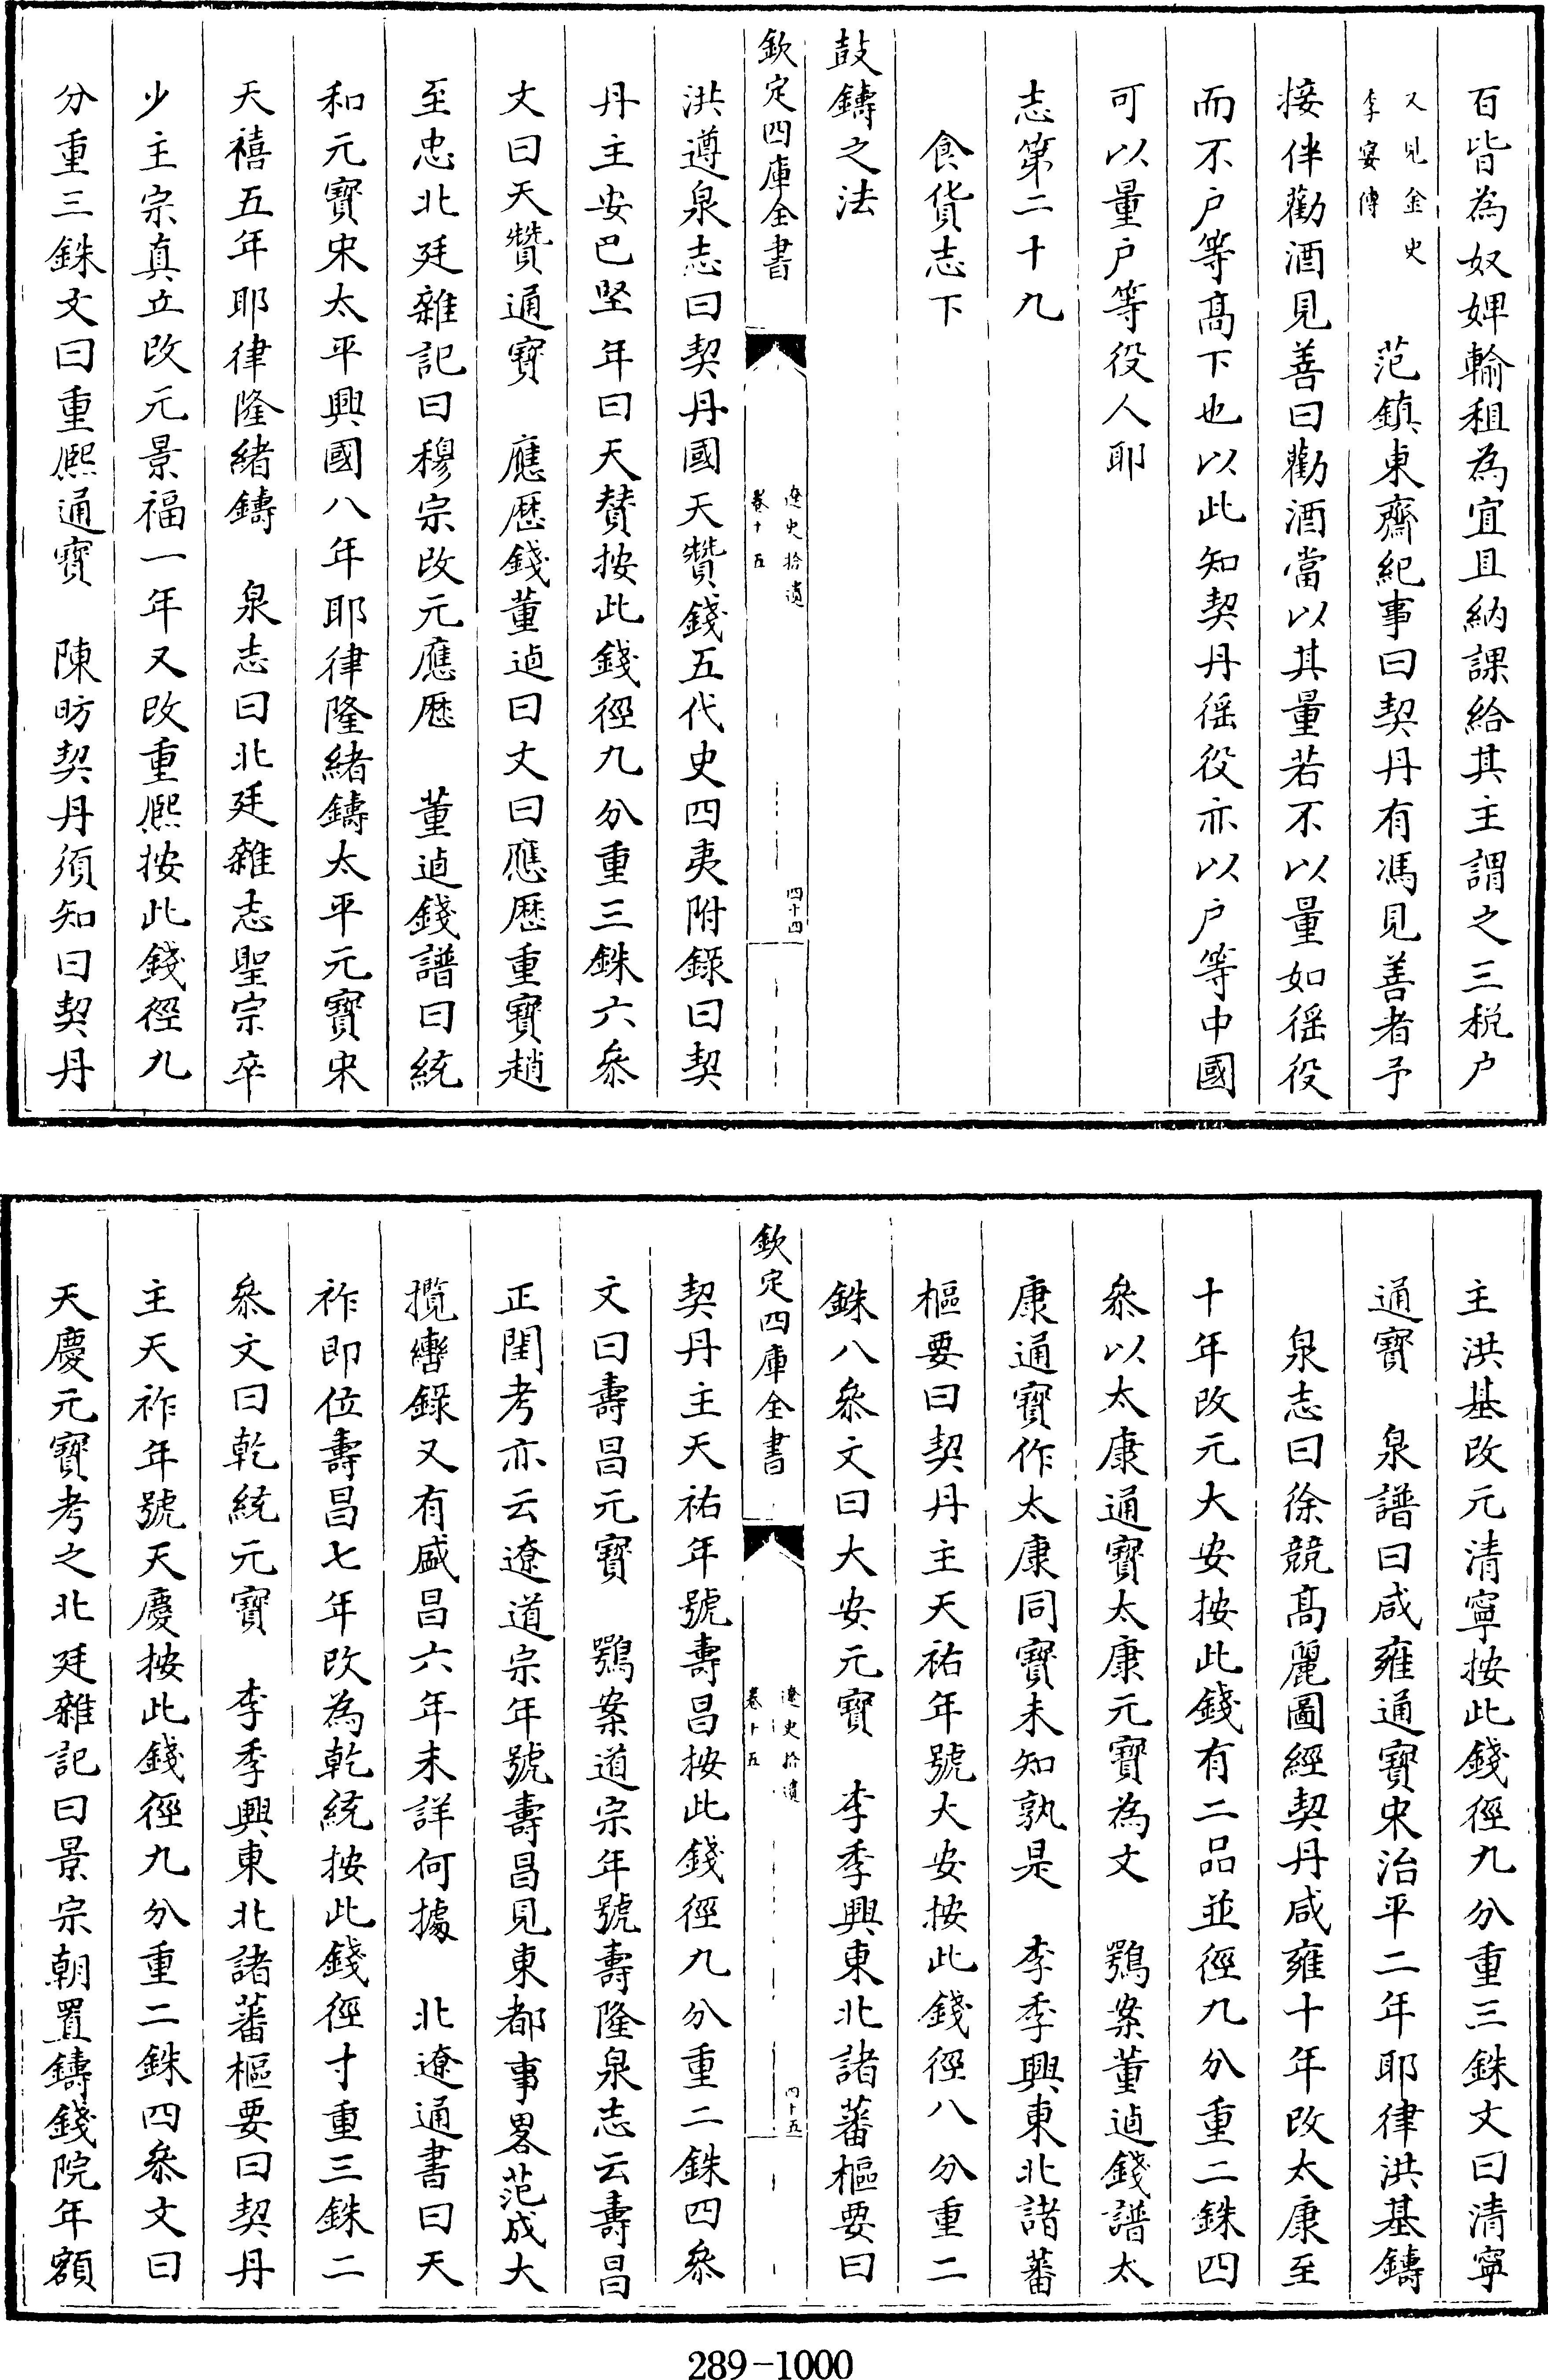 百皆為奴婢輸租為宜且納課給其主謂之三税户
又見金史
李宴傳
范鎮東齋紀事曰契丹有馮見善者予
接伴勸酒見善曰勸酒當以其量若不以量如徭役
而不户等高下也以此知契丹徭役亦以户等中國
可以量户等役人耶
志第二十九
食貨志下
鼓鑄之法
欽定四庫全書
遼史拾遺
卷十五
四十四
洪遵泉志曰契丹國天贊錢五代史四夷附錄曰契
丹主安巴堅年曰天賛按此錢徑九分重三銖六叅
文曰天贊通寶 應厯錢董逌曰文曰應厯重寶趙
至忠北廷雜記曰穆宗改元應厯 董逌錢譜曰統
和元寶宋太平興國八年耶律隆緒鑄太平元寶宋
天禧五年耶律隆緒鑄 泉志曰北廷雜志聖宗卒
少主宗真立改元景福一年又改重熙按此錢徑九
分重三銖文曰重熙通寶 陳昉契丹須知曰契丹
主洪基改元清寧按此錢徑九分重三銖文曰清寧
通寶 泉譜曰咸雍通寶宋治平二年耶律洪基鑄
泉志曰徐競高麗圖經契丹咸雍十年改太康至
十年改元大安按此錢有二品並徑九分重二銖四
叅以太康通寶太康元寶為文 鶚案董逌錢譜太
康通寶作太康同寶未知孰是 李季興東北諸蕃
樞要曰契丹主天祐年號大安按此錢徑八分重二
銖八叅文曰大安元寶 李季興東北諸蕃樞要曰
欽定四庫全書
遼史拾遺
卷十五
四十五
契丹主天祐年號壽昌按此錢徑九分重二銖四叅
文曰壽昌元寶 鶚案道宗年號壽隆泉志云壽昌
正閏考亦云遼道宗年號壽昌見東都事畧范成大
攬轡錄又有盛昌六年未詳何據 北遼通書曰天
祚即位壽昌七年改為乾統按此錢徑寸重三銖二
叅文曰乾統元寶 李季興東北諸蕃樞要曰契丹
主天祚年號天慶按此錢徑九分重二銖四叅文曰
天慶元寶考之北廷雜記曰景宗朝置鑄錢院年額
289-1000